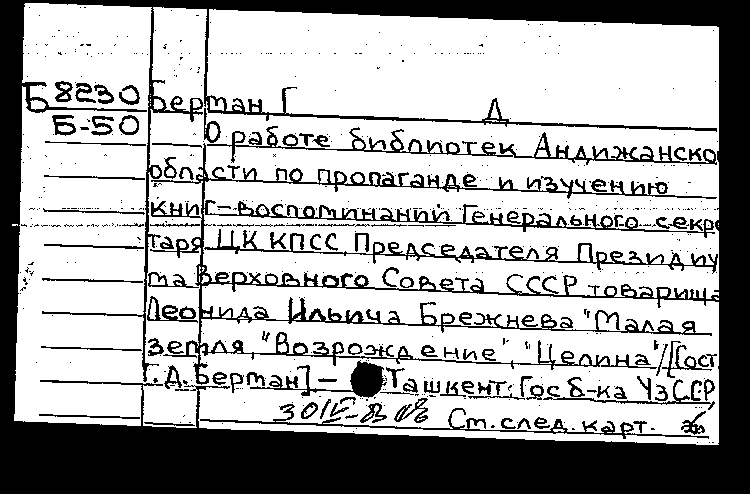 Б 8230 Берман, Г Д
Б-50 О работе библиотек Андижанско
области по пропаганде и изучению
книг-воспоминаний Генерального секре
таря ЦК КПСС, Председателя Президиу
ма Верховного Совета СССР товарища
Леонида Ильича Брежнева "Малая
земля", "Возрождение", "Целина"/[Сост.
Г.Д. Берман] – Ташкент: Гос б-ка УзССР,
Ст. след. карт.